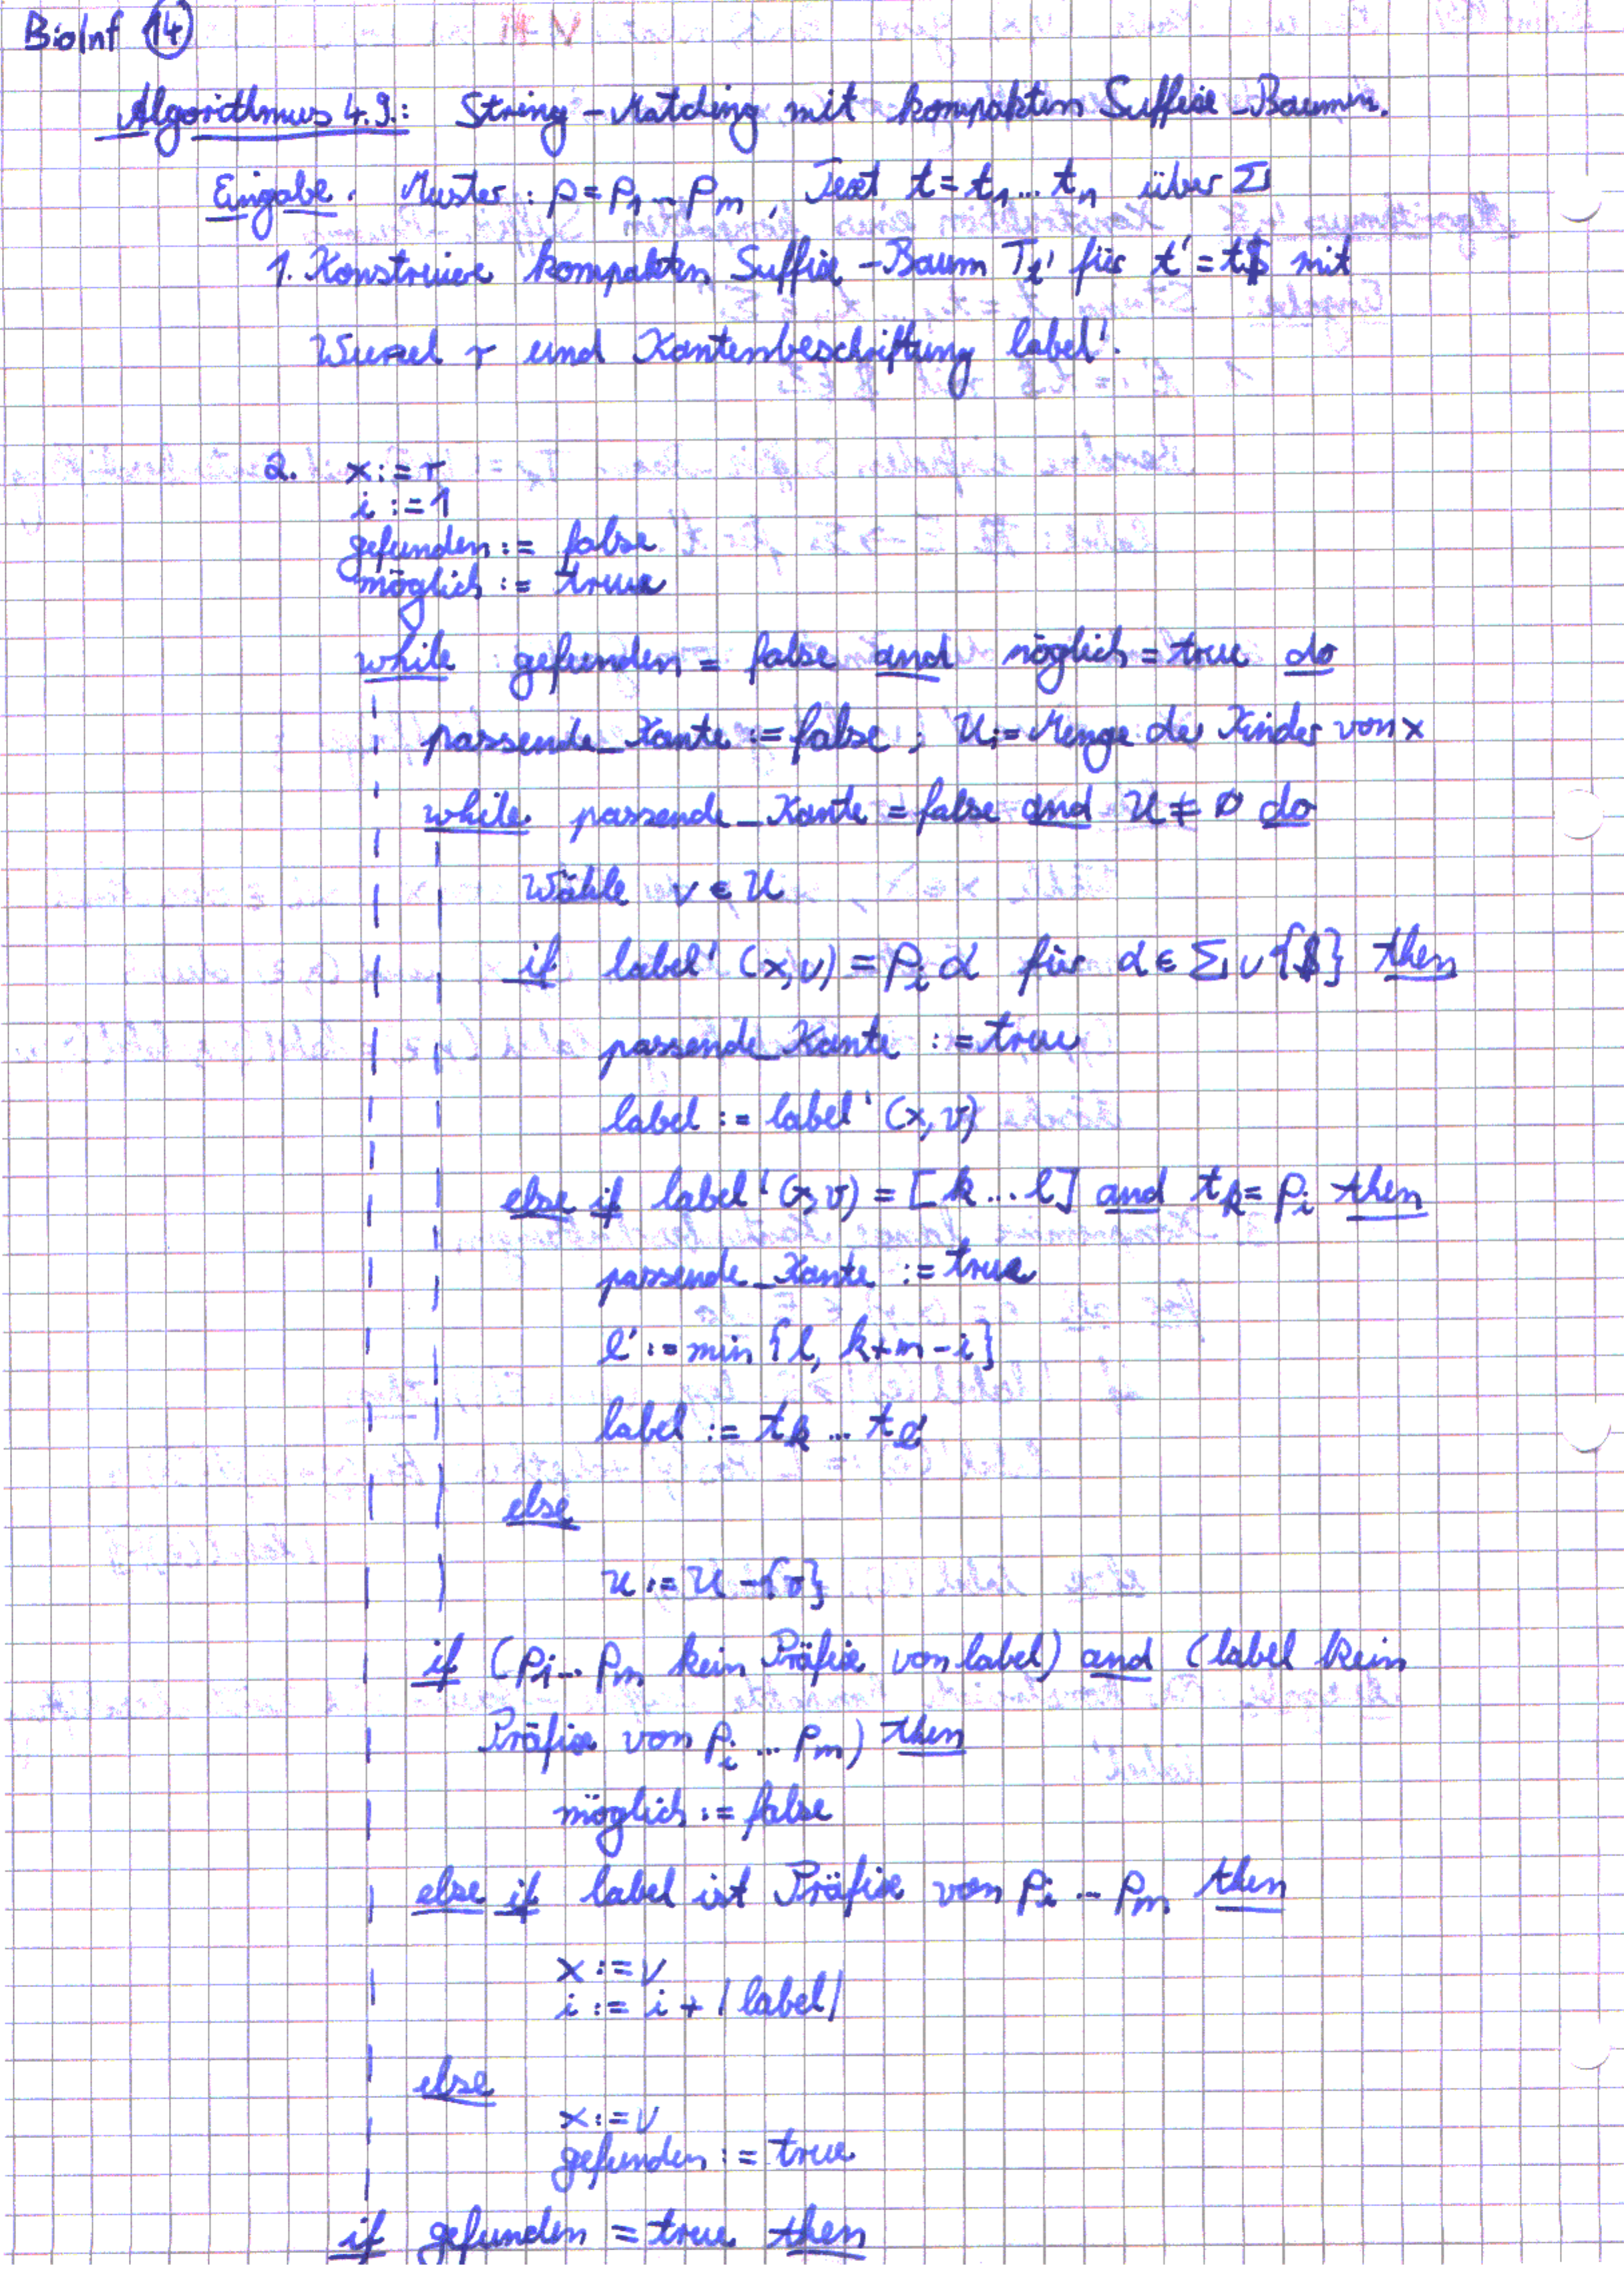 BioInf 14
Algorithmus 4.9.: String-Matching mit kompakten Suffix-Bäumen.
Eingabe. Muster: p = p₁...pₘ, Text t = t₁...tₙ über Σ
1. Konstruiere kompakten Suffix-Baum Tₜ' für t' = t$ mit
Wurzel r und Kantenbeschriftung label'.
2. x := r
i := 1
gefunden := false
möglich := true
while gefunden = false and möglich = true do
passende_Kante := false; U := Menge der Kinder von x
while passende_Kante = false and U ≠ ∅ do
Wähle v ∈ U
if label'(x,v) = pᵢα für α ∈ Σ ∪ {$} then
passende_Kante := true
label := label'(x,v)
else if label'(x,v) = [k...l] and tₖ = pᵢ then
passende_Kante := true
l' := min {l, k+m-i}
label := tₖ...tₗ'
else
U := U - {v}
if (pᵢ...pₘ kein Präfix von label) and (label kein
Präfix von pᵢ...pₘ) then
möglich := false
else if label ist Präfix von pᵢ...pₘ then
x := v
i := i + |label|
else
x := v
gefunden := true
if gefunden = true then